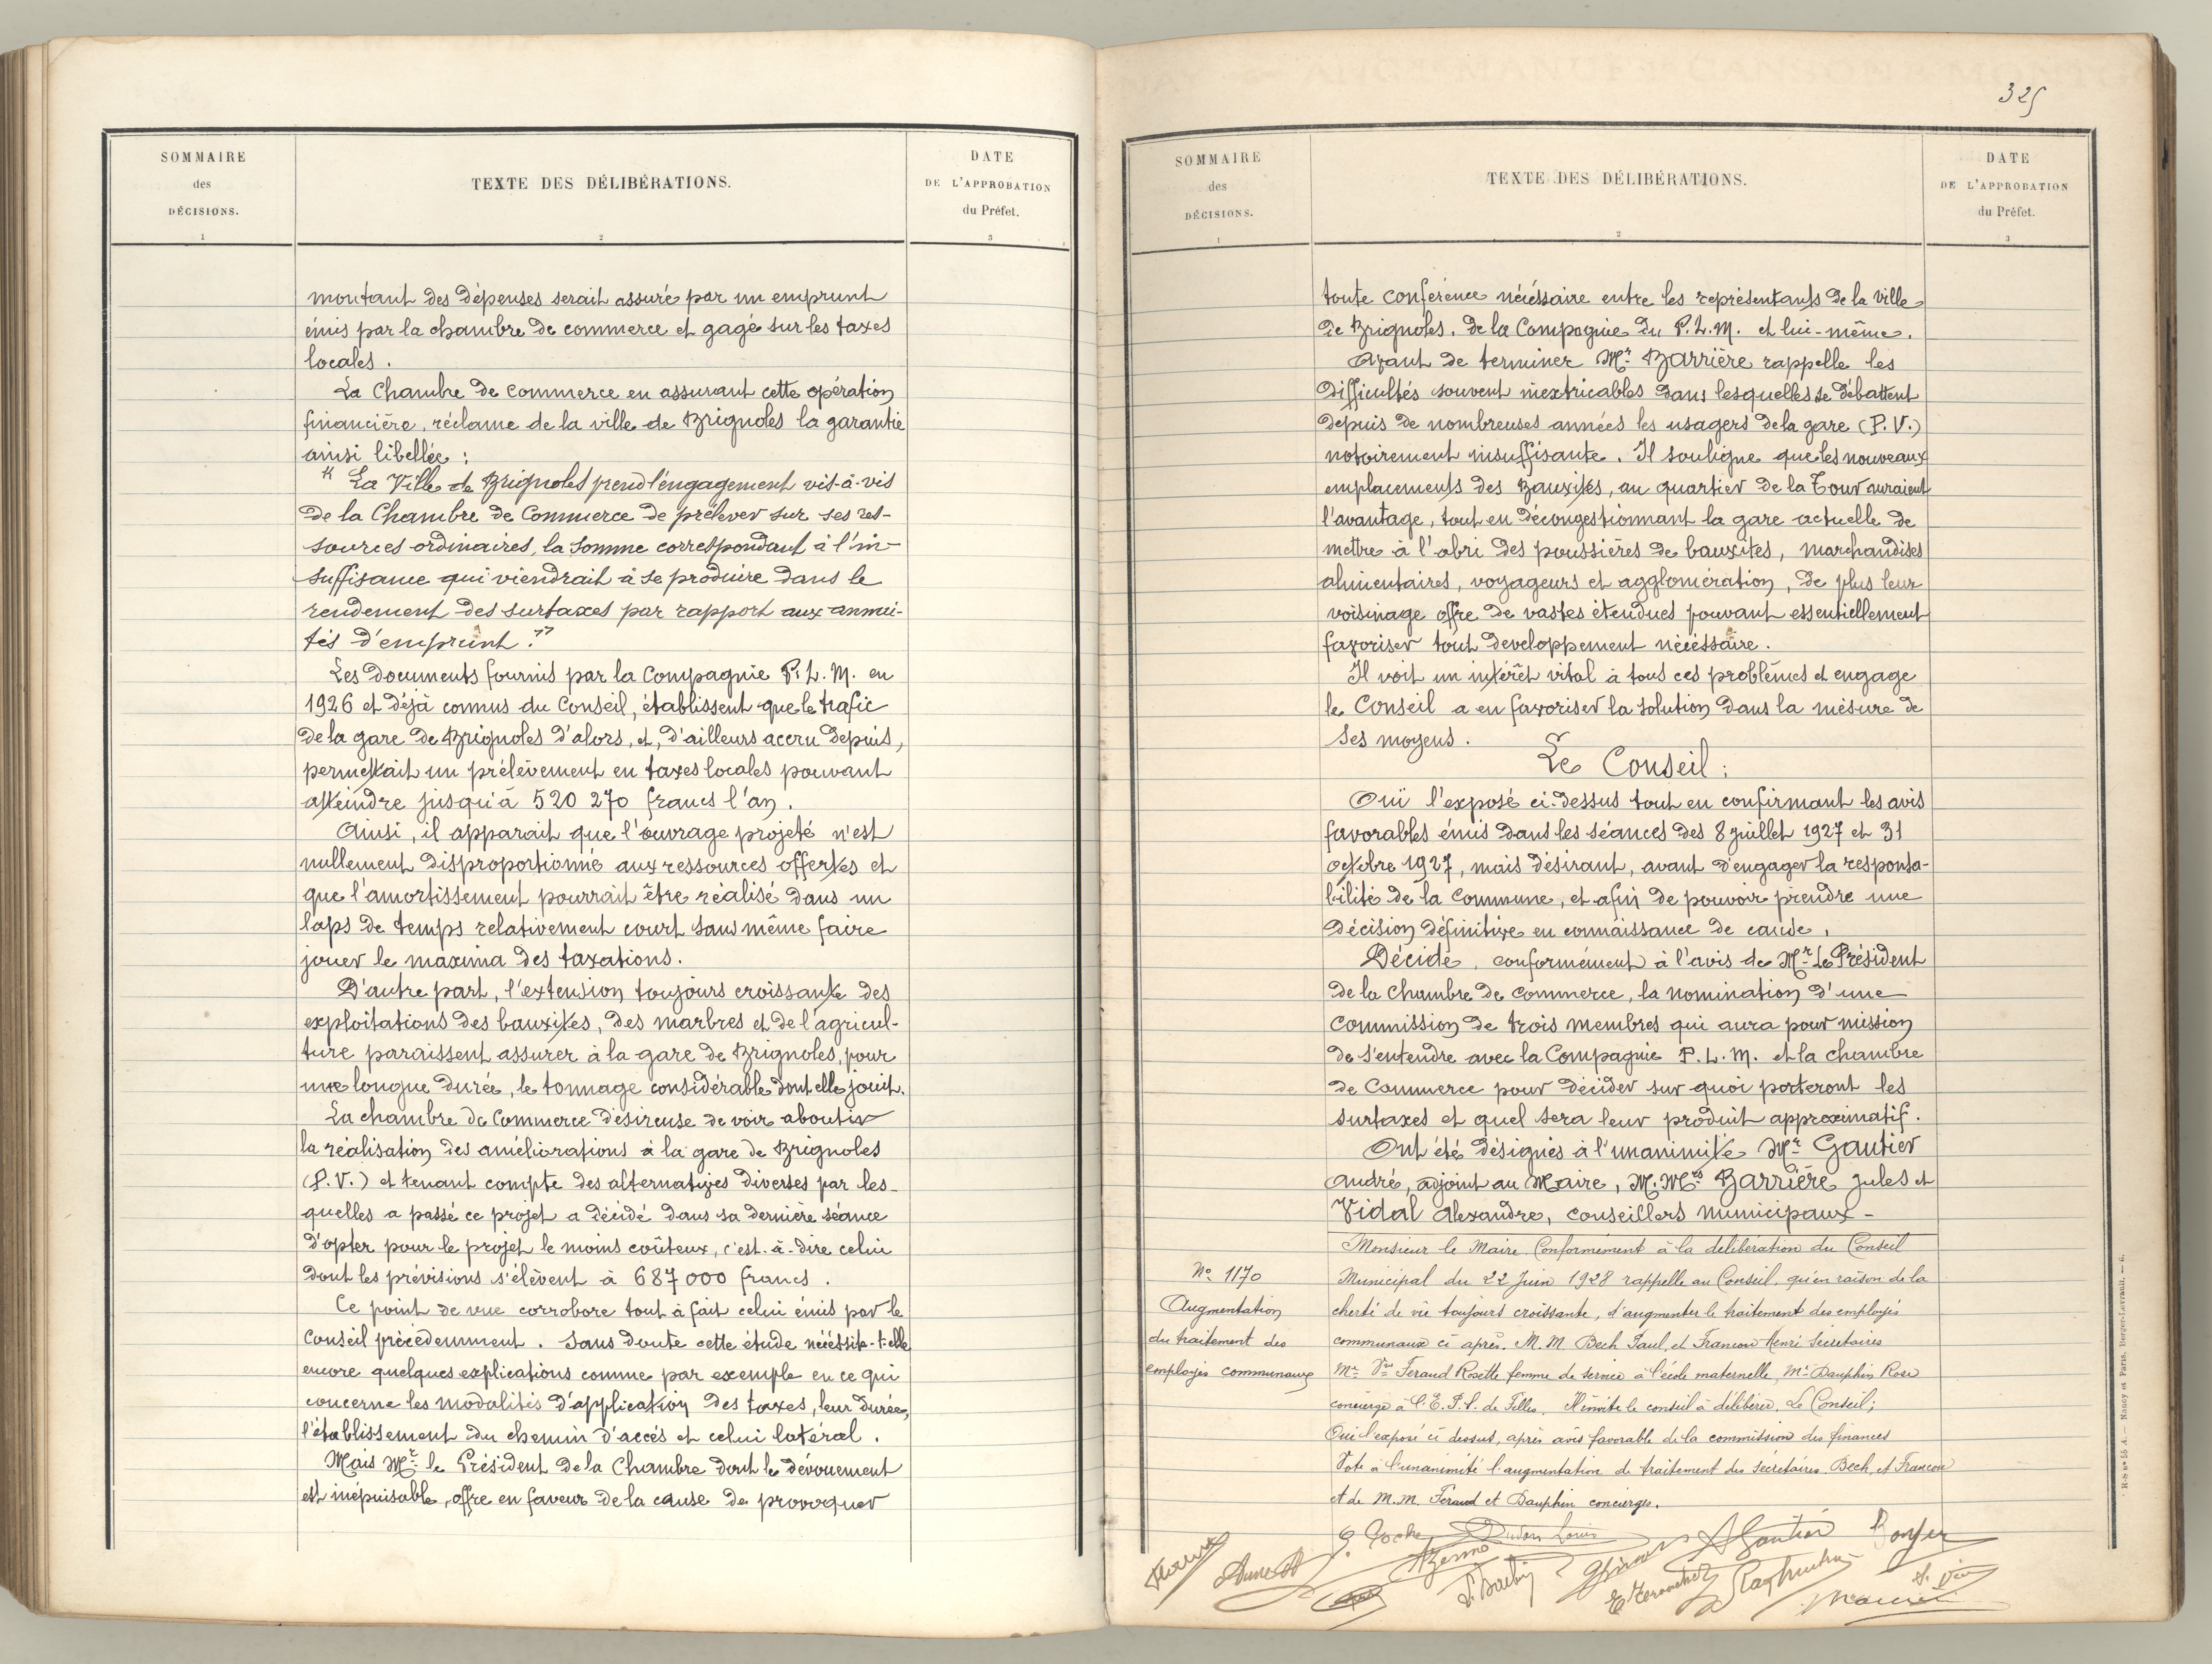 SOMMAIRE
des
DÉCISIONS.
1
TEXTE DES DÉLIBÉRATIONS.
2
DATE
DE L'APPROBATION
du Préfet.
3
montant des dépenses serait assuré par un emprunt
émis par la chambre de commerce et gagé sur les taxes
locales.
La Chambre de Commerce en assurant cette opération
financière, réclame de la ville de Brignoles la garantie
ainsi libellée :
" La Ville de Brignoles prend l'engagement vis-à-vis
de la Chambre de Commerce de prélever sur ses res-
sources ordinaires, la somme correspondant à l'in-
suffisance qui viendrait à se produire dans le
rendement des surtaxes par rapport aux annui-
tés d'emprunt. "
Les documents fournis par la Compagnie P. L. M. en
1926 et déjà connus du Conseil, établissent que le trafic
de la gare de Brignoles d'alors, et, d'ailleurs accru depuis,
permettait un prélèvement en taxes locales pouvant
atteindre jusqu'à 520 270 francs l'an.
Ainsi, il apparait que l'ouvrage projeté n'est
nullement disproportionné aux ressources offertes et
que l'amortissement pourrait être réalisé dans un
laps de temps relativement court sans même faire
jouer le maxima des taxations.
D'autre part, l'extension toujours croissante des
exploitations des bauxites, des marbres et de l'agricul-
ture paraissent assurer à la gare de Brignoles, pour
une longue durée, le tonnage considérable dont elle jouit.
La chambre de Commerce désireuse de voir aboutir
la réalisation des améliorations à la gare de Brignoles
(P.V.) et tenant compte des alternatives diverses par les-
quelles a passé ce projet a décidé dans sa dernière séance
d'opter pour le projet le moins coûteux, c'est-à-dire celui
dont les prévisions s'élèvent à 687 000 francs.
Ce point de vue corrobore tout à fait celui émis par le
Conseil précédemment. Sans doute cette étude nécéssite-t-elle
encore quelques explications comme par exemple en ce qui
concerne les modalités d'application des taxes, leur durée,
l'établissement du chemin d'accés et celui latéral.
Mais Mr. le Président de la Chambre dont le dévouement
est inépuisable, offre en faveur de la cause de provoquer
325
SOMMAIRE
des
DÉCISIONS.
1
TEXTE DES DÉLIBÉRATIONS.
2
DATE
DE L'APPROBATION
du Préfet.
3
toute conférence nécéssaire entre les représentants de la Ville
de Brignoles, de la Compagnie du P.L.M. et lui-même.
Avant de terminer Mr. Barrière rappelle les
difficultés souvent inextricables dans lesquelles se débattent
depuis de nombreuses années les usagers de la gare (P.V.)
notoirement insuffisante. Il souligne que les nouveaux
emplacements des Bauxites, au quartier de la Tour auraient
l'avantage, tout en décongestionnant la gare actuelle de
mettre à l'abri des poussières de bauxites, marchandises
alimentaires, voyageurs et agglomération, de plus leur
voisinage offre de vastes étendues pouvant essentiellement
favoriser tout developpement nécéssaire.
Il voit un intérêt vital à tous ces problèmes et engage
le Conseil a en favoriser la solution dans la mésure de
ses moyens.
Le Conseil :
Ouï l'exposé ci-dessus tout en confirmant les avis
favorables émis dans les séances des 8 juillet 1927 et 31
octobre 1927, mais désirant, avant d'engager la responsa-
bilité de la Commune, et afin de pouvoir prendre une
décision définitive en connaissance de cause,
Décide, conformément à l'avis de Mr. Le Président
de la Chambre de Commerce, la nomination d'une
Commission de trois membres qui aura pour mission
de s'entendre avec la Compagnie P.L.M. et la chambre
de Commerce pour décider sur quoi porteront les
surtaxes et quel sera leur produit approximatif.
Ont été désignés à l'unanimité Mr. Gautier
André, adjoint au Maire, M.Mrs Barrière Jules et
Vidal Alexandre, conseillers municipaux -
Monsieur le Maire Conformément à la délibération du Conseil
No. 1170
Augmentation
du traitement des
employés communaux
Municipal du 22 Juin 1928 rappelle au Conseil, qu'en raison de la
cherté de vie toujours croissante, d'augmenter le traitement des employés
communaux ci après. M. M. Bech Paul, et Francou Henri Secrétaires
Me Vve Feraud Rosette femme de service à l'école maternelle, Me Dauphin Rose
concierge à l'E.P.S. de Filles. Il invite le conseil à délibérer. Le Conseil;
Ouï l'exposé ci dessus, après avis favorable de la commission des finances
Vote à l'unanimité l'augmentation de traitement des secrétaires Bech, et Francou
et de M.M. Feraud et Dauphin concierges.
Louis
A Gautier
R-S no 55 A. — Nancy et Paris. Berger-Levrault. — 6.